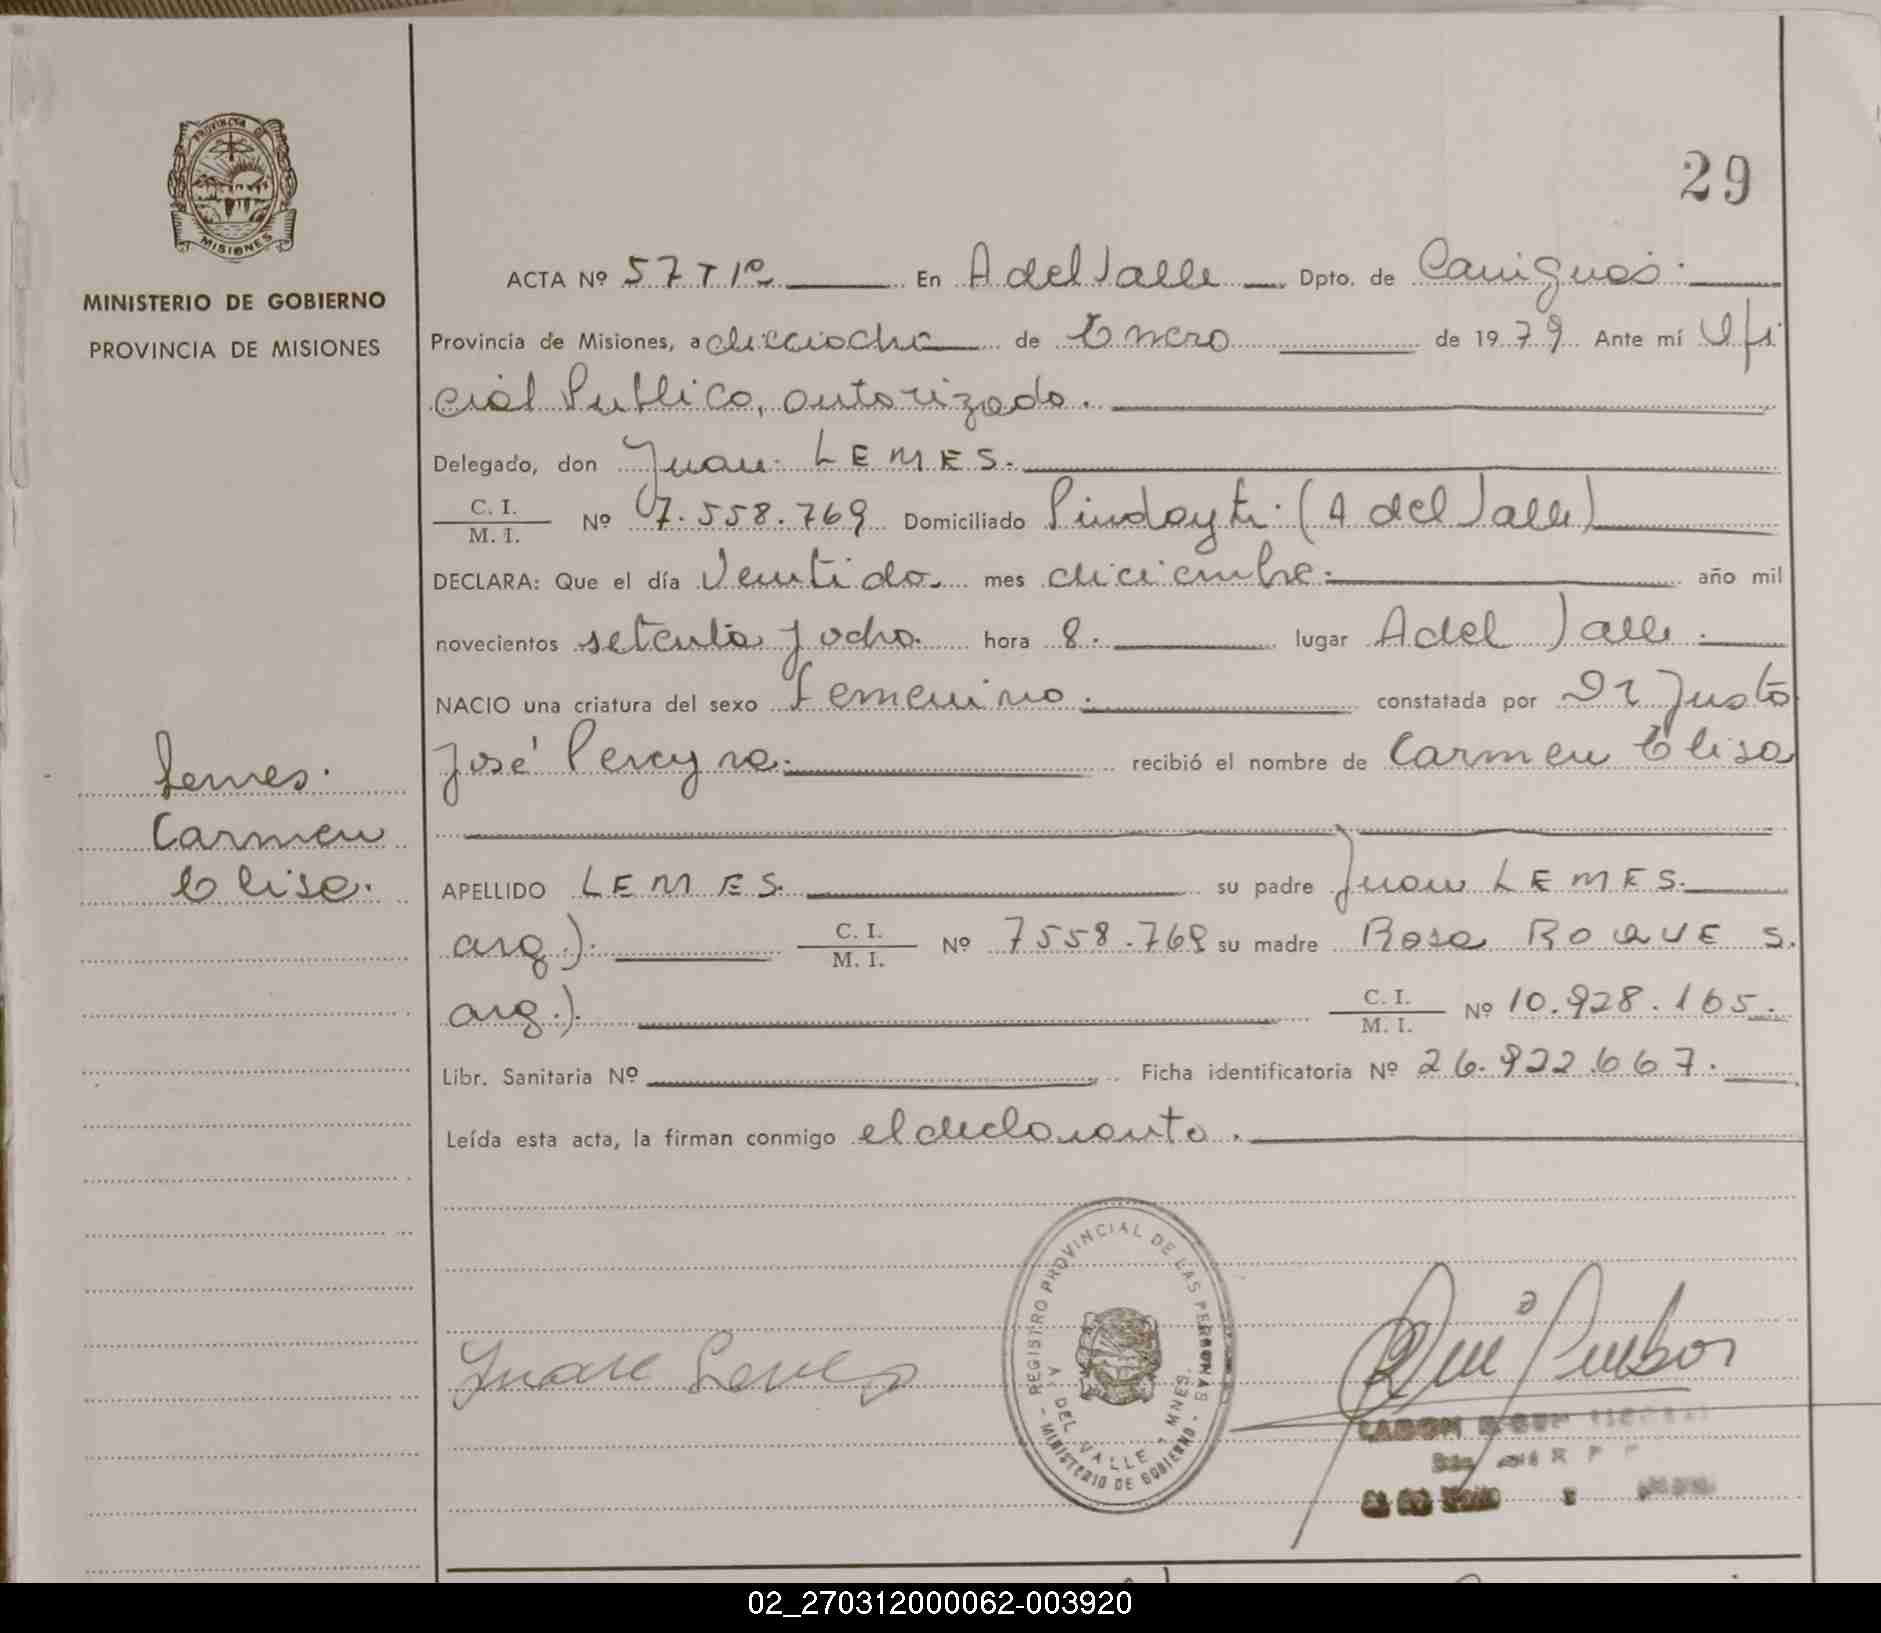 29
PROVINCIA DE
MISIONES
MINISTERIO DE GOBIERNO
PROVINCIA DE MISIONES
ACTA Nº 57 T 1º En A del Valle Dpto. de Cainguás.
Provincia de Misiones, a dieciocho de Enero de 1979 Ante mí Ofi
cial Publico, autorizado.
Delegado, don Juan LEMES.
C. I.
M. I. Nº 7.558.769 Domiciliado Pindayti (A del Valle)
DECLARA: Que el día Ventido mes diciembre. año mil
novecientos setenta y ocho. hora 8. lugar A del Valle.
NACIO una criatura del sexo femenino. constatada por Dr Justo
José Pereyra. recibió el nombre de Carmen Elisa
Lemes.
Carmen
Elisa.
APELLIDO LEMES. su padre Juan LEMES.
arg.). C. I.
M. I. Nº 7558.769 su madre Rosa ROQUE S.
arg.). C. I.
M. I. Nº 10.928.165.
Libr. Sanitaria Nº Ficha identificatoria Nº 26.922.667.
Leída esta acta, la firman conmigo el declarante.
Juan Lemes
REGISTRO PROVINCIAL DE LAS PERSONAS
A. DEL VALLE - MNES.
- MINISTERIO DE GOBIERNO -
02_270312000062-003920